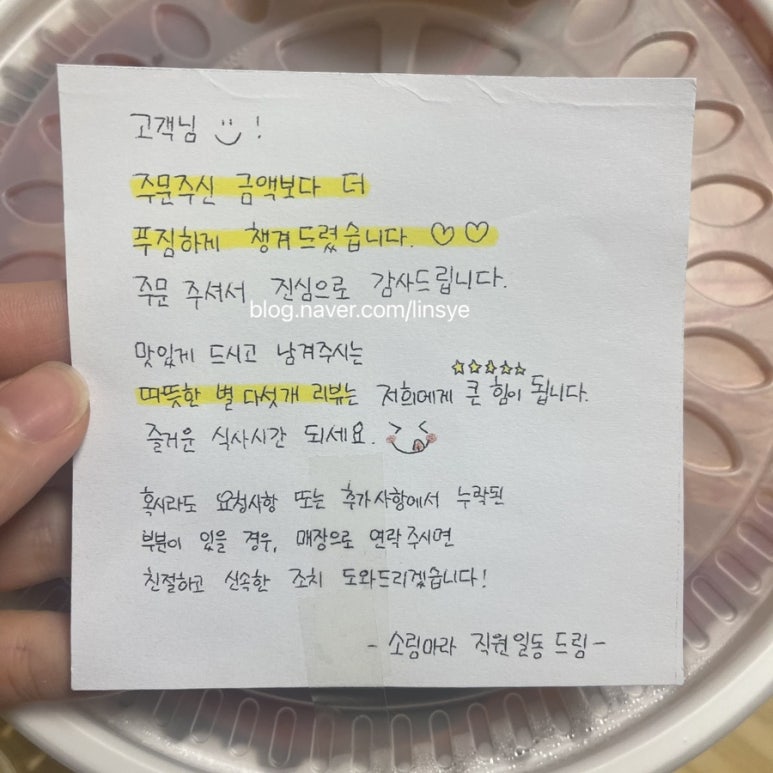 고객님 !
주문주신 금액보다 더
푸짐하게 챙겨드렸습니다. ♡♡
주문 주셔서 진심으로 감사드립니다.
blog.naver.com/linsye
맛있게 드시고 남겨주시는
따뜻한 별 다섯개 리뷰는 저희에게 큰 힘이 됩니다.
즐거운 식사시간 되세요.
혹시라도 요청사항 또는 추가사항에서 누락된
부분이 있을 경우, 매장으로 연락주시면
친절하고 신속한 조치 도와드리겠습니다!
- 소림마라 직원일동 드림 -